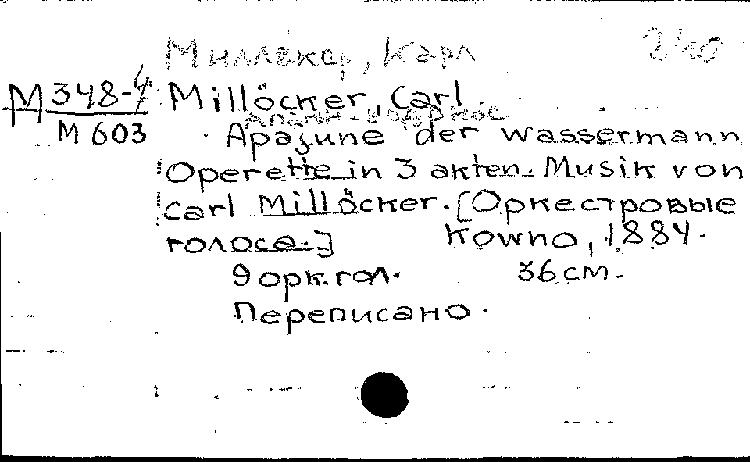 Миллекер, Карл 240
М 348-4 Millöcker, Carl
М 603
Apajune der wassermann
Operette in 3 akten. Musik von
Carl Millöcker. [Оркестровые
голоса.] Kowno, 1884.
9 орк. гол. 36 см.
Переписано.